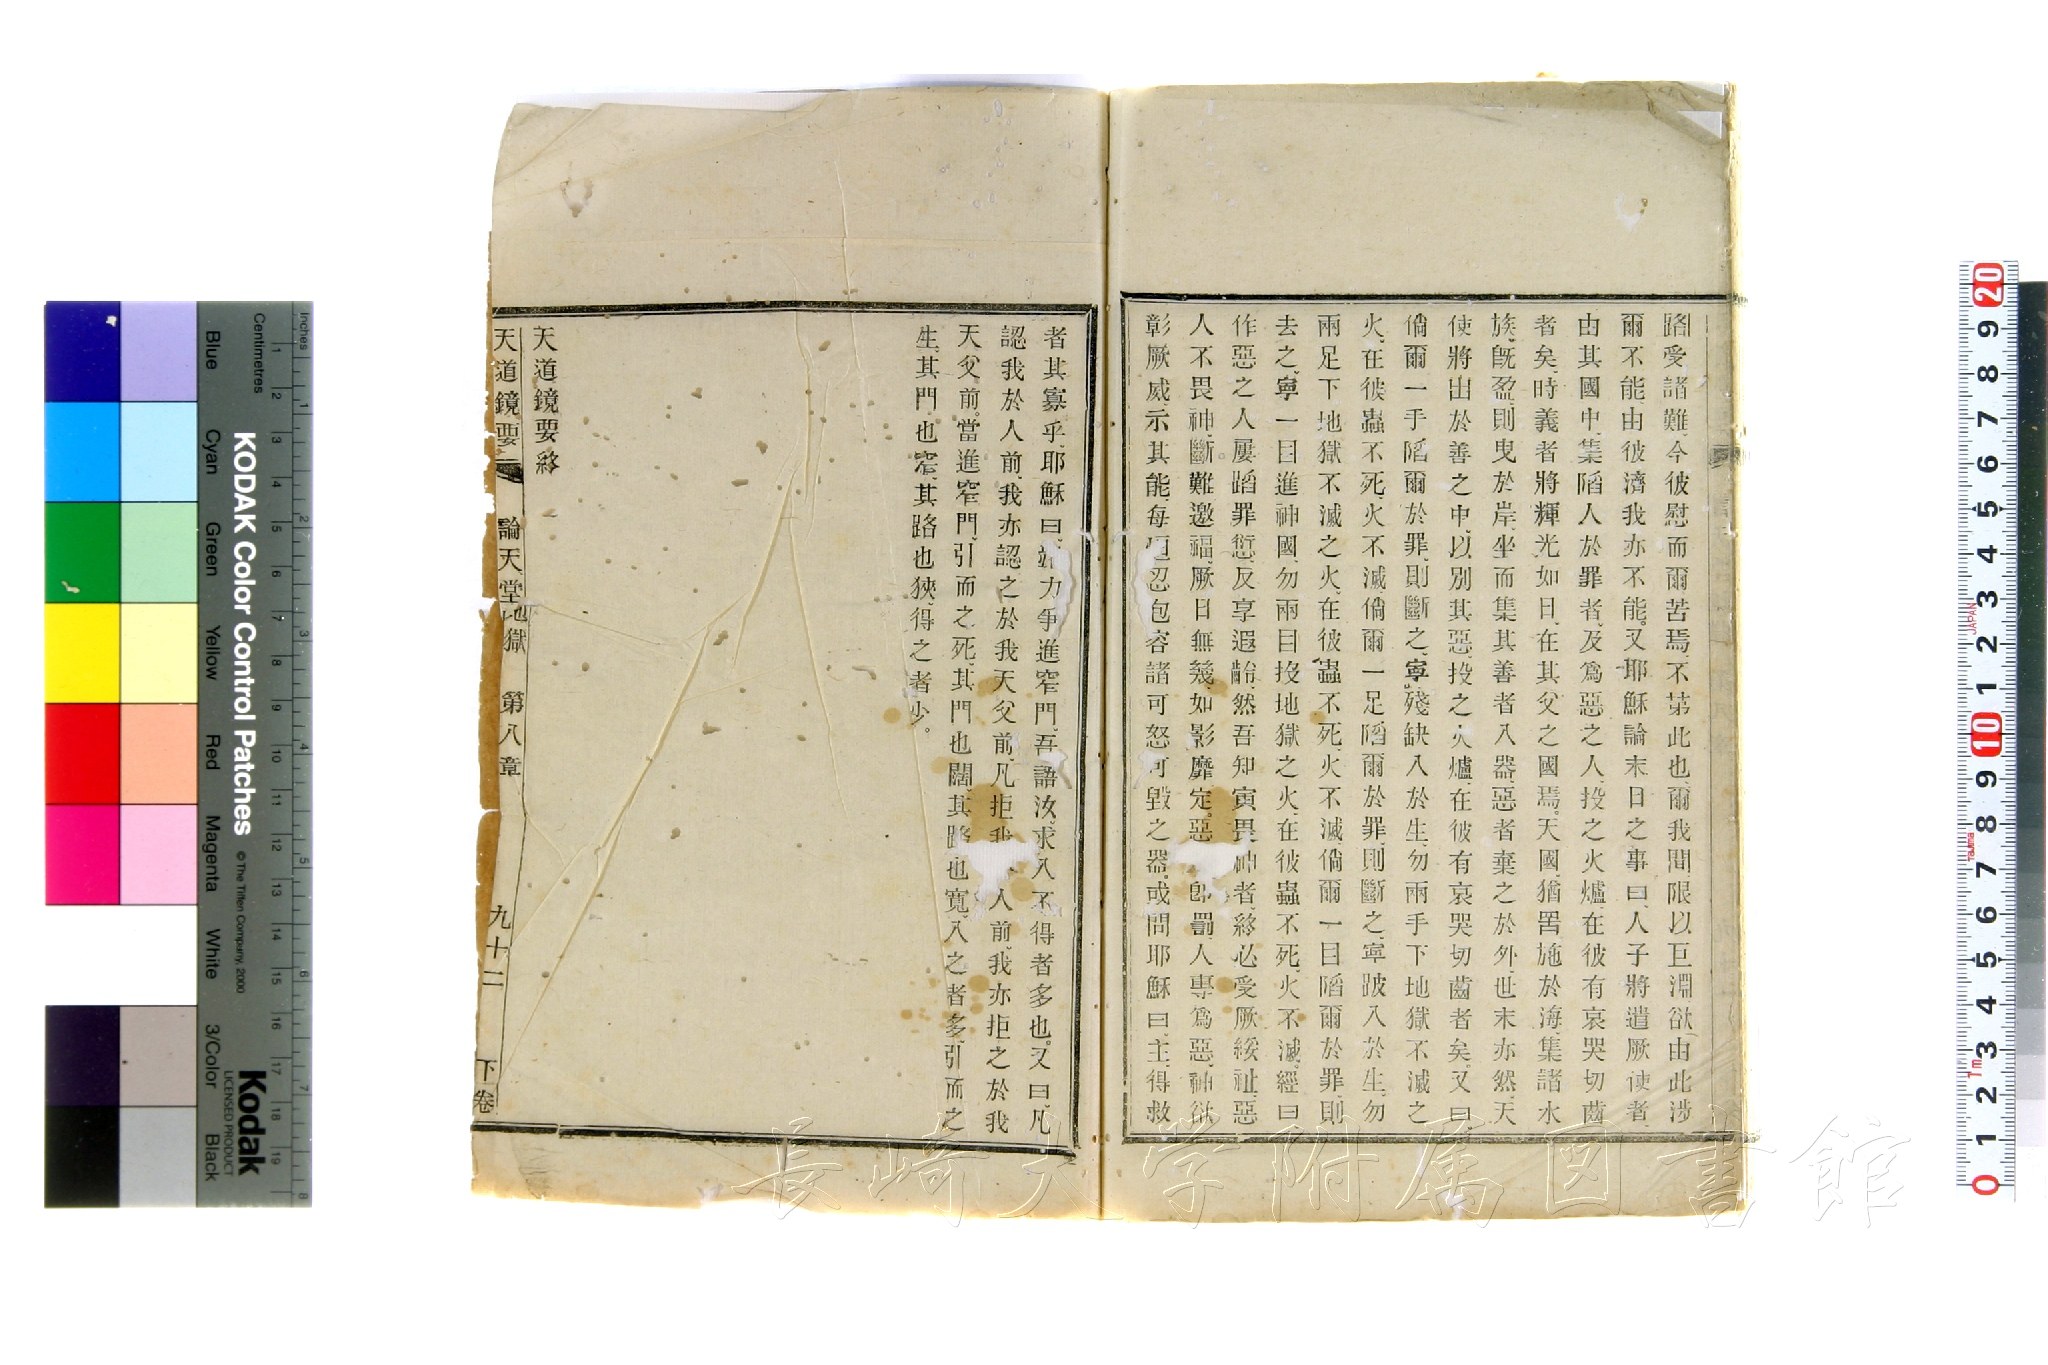 路受諸難、今彼慰而爾苦焉、不第此也、爾我間、限以巨淵、欲由此涉
爾不能、由彼濟我亦不能。又耶穌論末日之事曰、人子將遣厥使者、
由其國中、集陷人於罪者、及爲惡之人、投之火爐、在彼有哀哭切齒
者矣、時義者將輝光如日、在其父之國焉。天國、猶罟施於海、集諸水
族、旣盈、則曳於岸、坐而集其善者入器、惡者棄之於外、世末亦然、天
使將出於善之中、以別其惡、投之火爐、在彼有哀哭切齒者矣、又曰
倘爾一手陷爾於罪、則斷之、寧殘缺入於生、勿兩手下地獄不滅之
火、在彼蟲不死、火不滅、倘爾一足陷爾於罪、則斷之、寧跛入於生、勿
兩足下地獄不滅之火、在彼蟲不死、火不滅、倘爾一目陷爾於罪、則
去之、寧一目進神國、勿兩目投地獄之火、在彼蟲不死、火不滅、經曰
作惡之人、屢蹈罪愆、反享遐齡、然吾知寅畏神者、終必受厥綏祉、惡
人不畏神、斷難邀福、厥日無幾、如影靡定、惡 卽罰、人專爲惡、神欲
彰厥威、示其能、每恒忍包容諸可怒可毀之器、或問耶穌曰、主、得救
者其寡乎、耶穌曰、竭力爭進窄門、吾語汝、求入不得者多也。又曰、凡
認我於人前、我亦認之於我天父前、凡拒我 人前、我亦拒之於我
天父前。當進窄門、引而之死、其門也闊、其路也寬、入之者多、引而之
生、其門也窄、其路也狹、得之者少。
天道鏡要終
天道鏡要 論天堂地獄 第八章 九十二 下卷
長崎大学附属図書館
KODAK Color Control Patches
© The Tiffen Company, 2000
Kodak
LICENSED PRODUCT
Inches
Centimetres
Blue
Cyan
Green
Yellow
Red
Magenta
White
3/Color
Black
1 2 3 4 5 6 7 8 9 10 11 12 13 14 15 16 17 18 19
1 2 3 4 5 6 7 8
20 9 8 7 6 5 4 3 2 1 10 9 8 7 6 5 4 3 2 1 0
JAPAN